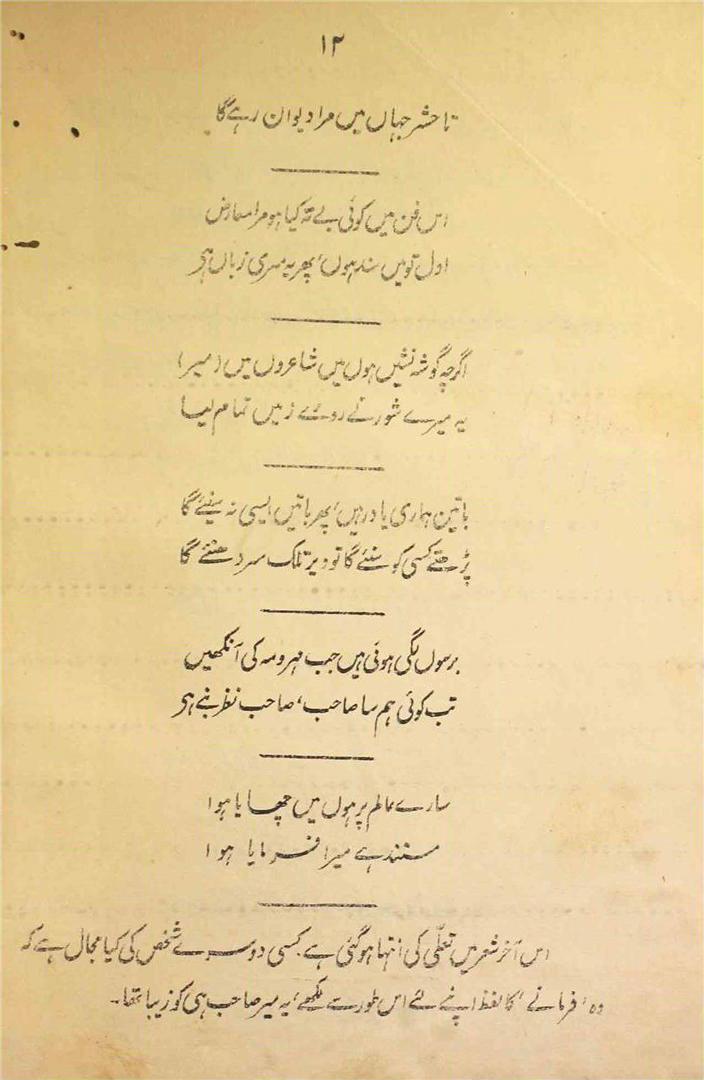 ۱۲
تا حشر جہاں میں مرا دیوان رہے گا
اس فن میں کوئی بے تہ کیا ہو مرا معارض
اول تو میں سند ہوں، پھر یہ میری زباں ہی
اگرچہ گوشہ نشیں ہوں میں شاعروں میں (میر)
یہ میرے شور نے روئے زمیں تمام لیا
باتیں ہماری یاد رہیں، پھر باتیں ایسی نہ سنیئے گا
پڑھتے کسی کو سنئے گا تو دیر تلک سر دھنئے گا
برسوں لگی ہوئی ہیں جب مہر و مہ کی آنکھیں
تب کوئی ہم سا صاحب، صاحب نظر بنے ہی
سارے عالم پر ہوں میں چھایا ہوا
مستند ہے میرا فرمایا ہوا
اس آخر شعر میں تعلّی کی انتہا ہو گئی ہے. کسی دوسرے شخص کی کیا مجال ہے کہ
وہ 'فرمانے' کا لفظ اپنے لئے اس طور سے لکھے، یہ میر صاحب ہی کو زیبا تھا۔